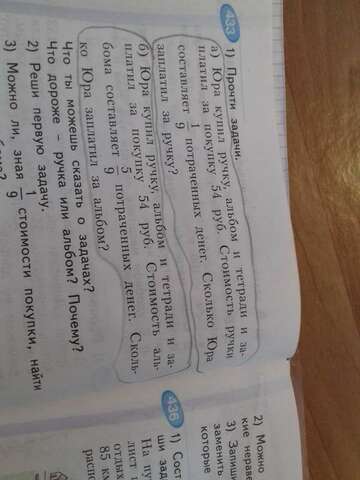 433
1) Прочти задачи.
а) Юра купил ручку, альбом и тетради и за-
платил за покупку 54 руб. Стоимость ручки
составляет 1/9 потраченных денег. Сколько Юра
заплатил за ручку?
б) Юра купил ручку, альбом и тетради и за-
платил за покупку 54 руб. Стоимость аль-
бома составляет 5/9 потраченных денег. Сколь-
ко Юра заплатил за альбом?
Что ты можешь сказать о задачах?
Что дороже – ручка или альбом? Почему?
2) Реши первую задачу.
3) Можно ли, зная 1/9 стоимости покупки, найти
2) Можно
кие нерав
3) Запиши
заменить
которые
436
1) Сост
ши зад
На пу
лист
отдых
85 км
расп